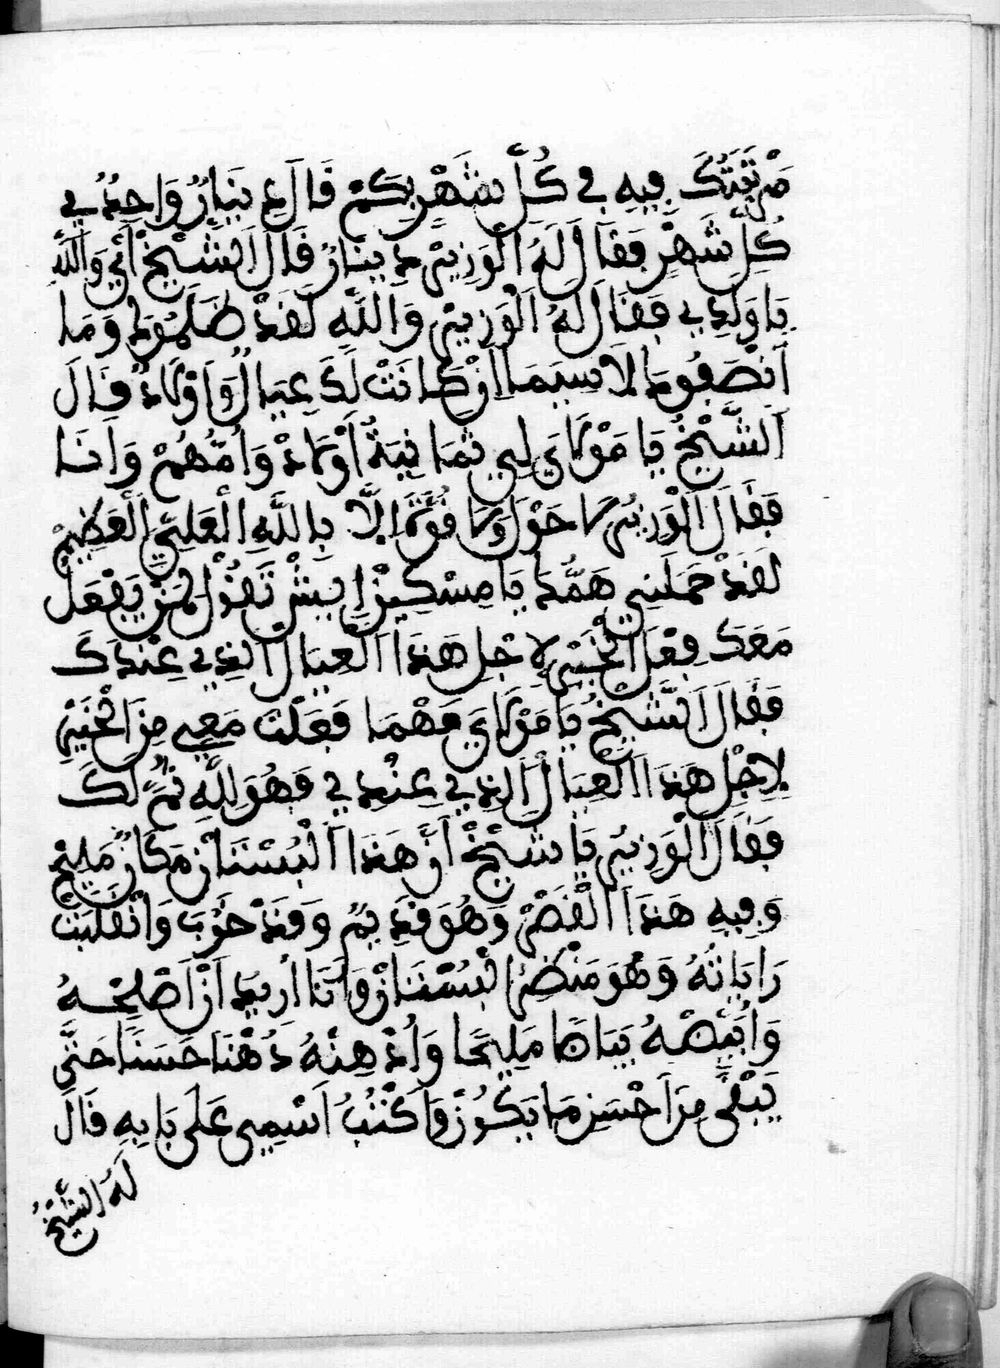 مرتبتك فيه في كل شهر بكم قال دينار واحد في
كل شهر فقال له الوزير دينار قال الشيخ أي والله
يا ولدي فقال له الوزير والله لقد ظلموك وما
انصفوك لا سيما ان كانت لك عيال واولاد قال
الشيخ يا مولاي لي ثمانية اولاد وامهم وانا
فقال الوزير لا حول ولا قوة الا بالله العلي العظيم
لقد حملني همك يا مسكين ايش تقول لمن يفعل
معك فعل الخير لاجل هذا العيال الذي عندك
فقال الشيخ يا مولاي مهما فعلت معي من الخير
لاجل هذا العيال الذي عندي فهو لله ثم لك
فقال الوزير يا شيخ ان هذا البستان مكان مليح
وفيه هذا القصر وهو قديم وقد خرب وانقلبت
راياته وهو منظر البستان وانا اريد ان اصلحه
وابيضه بياضا مليحا وادهنه دهنا حسنا حتى
يبقى من احسن ما يكون واكتب اسمي على بابه قال
له الشيخ